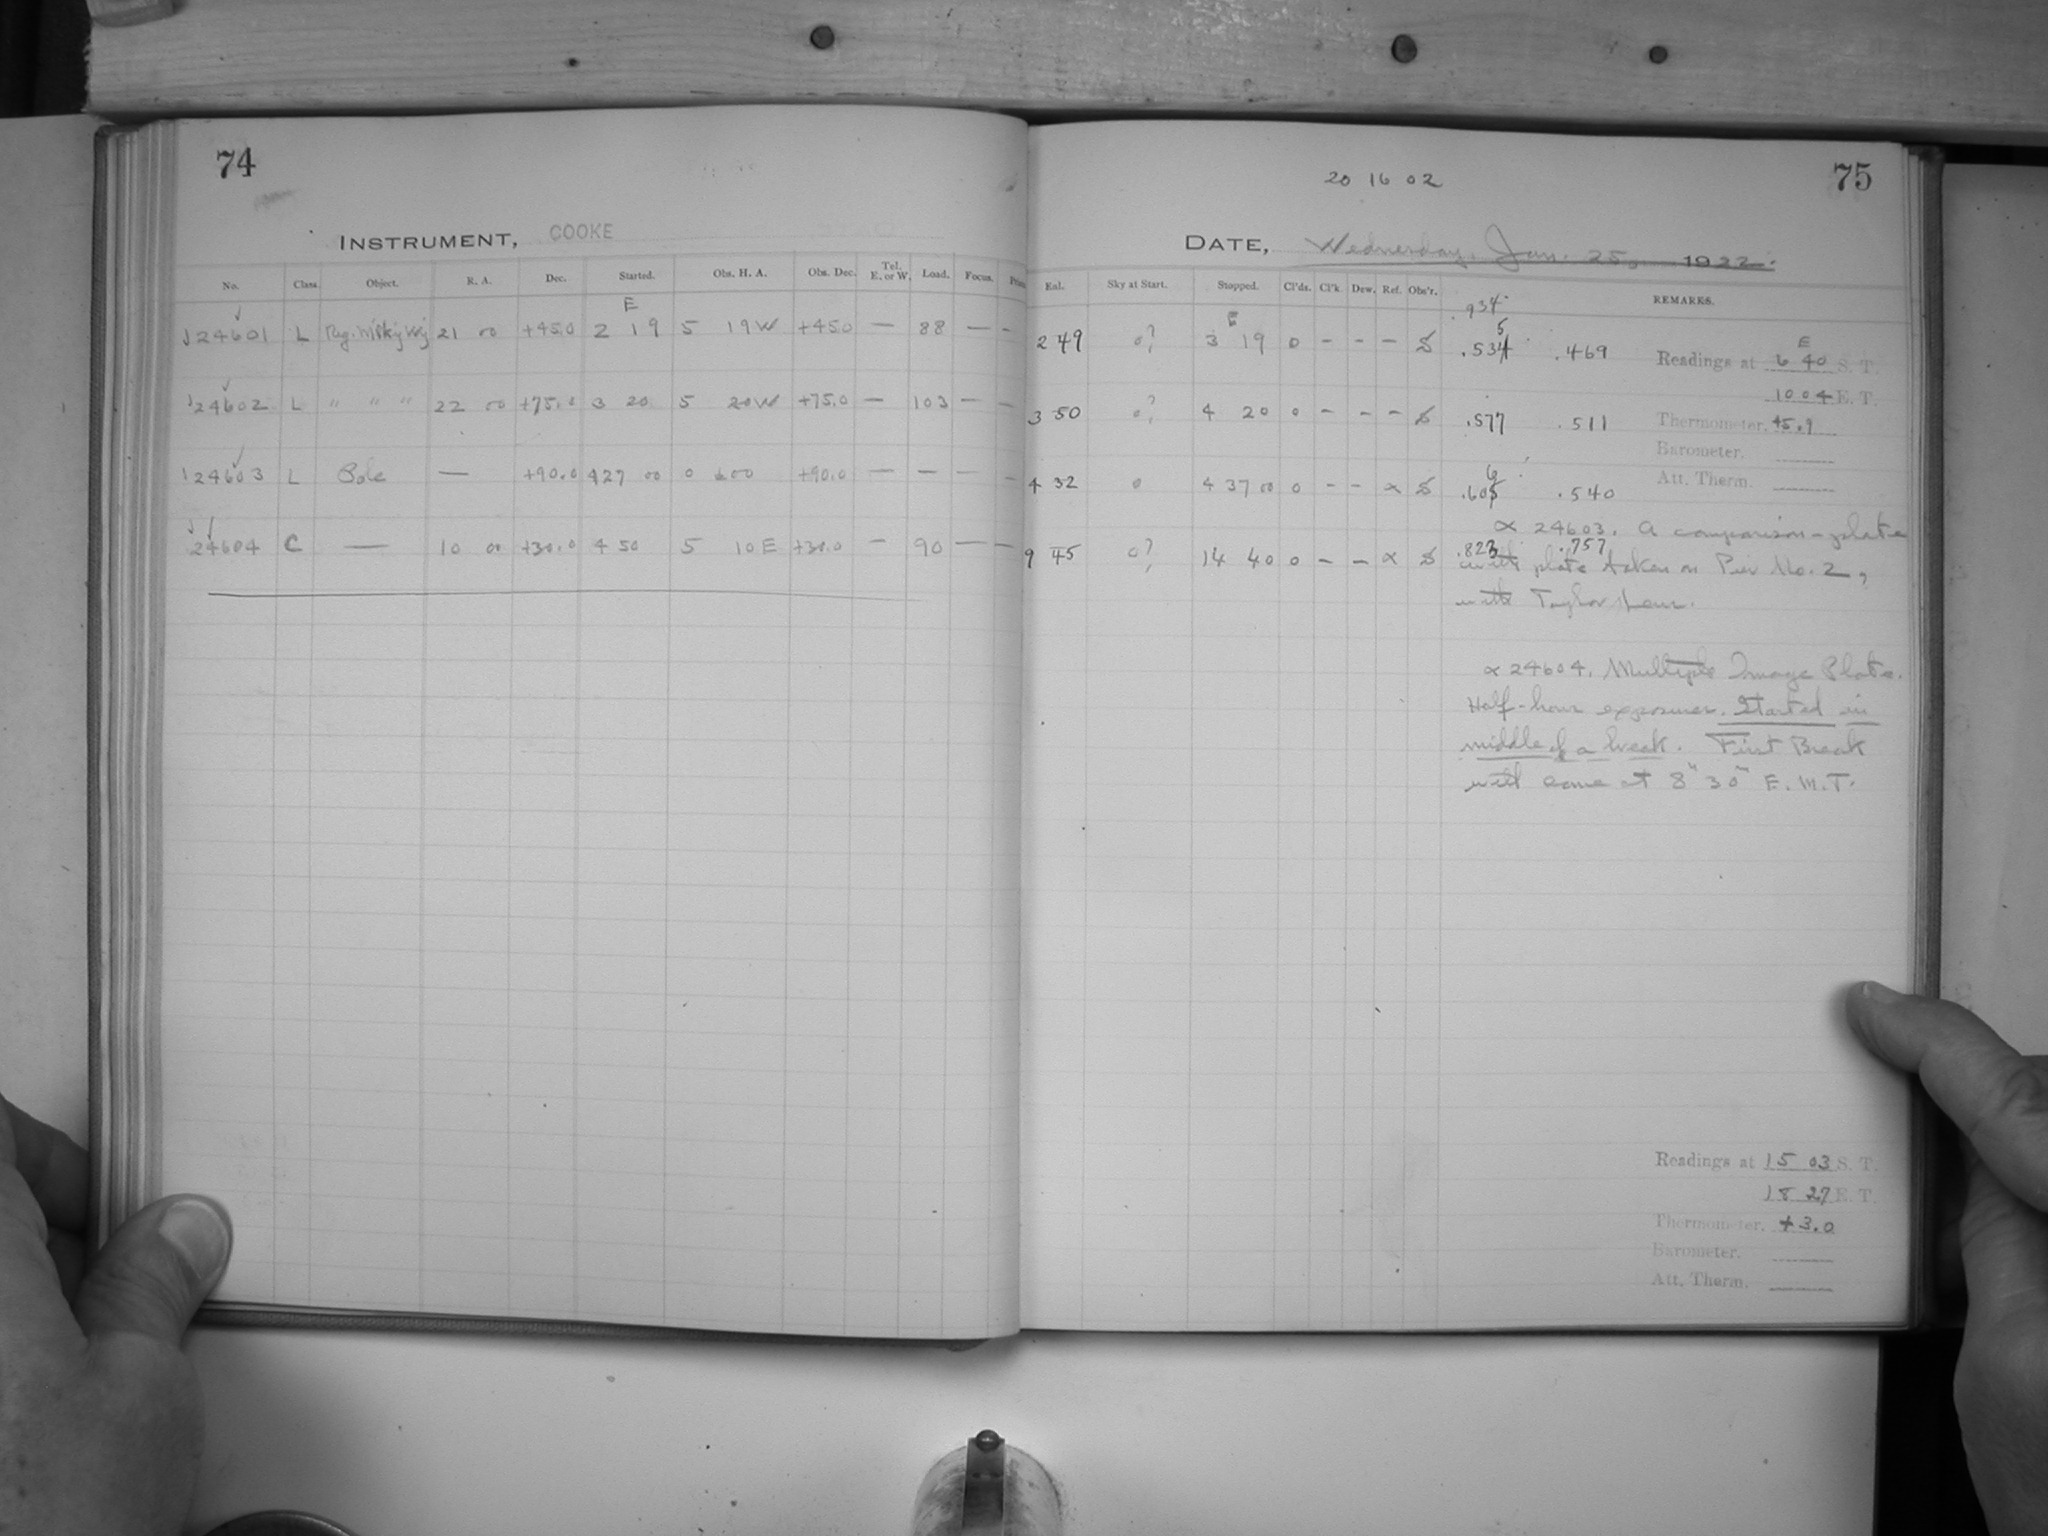 74
INSTRUMENT, COOKE
No. Class. Object. R. A. Dec. Started. Obs. H. A. Obs. Dec. Tel. E. or W. Load. Focus.
E
24601 L 21 00 +45.0 2 19 5 19 W +45.0 — 88 — –
24602 L " " " 22 00 +75.0 3 20 5 20 W +75.0 — 103 — –
24603 L Pole — +90.0 4 27 00 0 +90.0 — — — –
24604 C — 10 00 +30.0 4 50 5 10 E +30.0 – 90 — –
20 16 02
75
DATE, Wednesday, Jan. 25, 1922.
Eal. Sky at Start. Stopped. Cl'ds. Cl'k. Dew. Ref. Obs'r. REMARKS.
.934
E
2 49 0? 3 19 0 – – – .469
3 50 0? 4 20 0 – – – .577 .511
4 32 0 4 37 00 0 – – α .540
9 45 0? 14 40 0 – – α .823 .757
E
Readings at 6 40 S. T.
10 04 E. T.
Thermometer.
Barometer.
Att. Therm.
α 24603. A comparison-plate
with plate taken on Pier No. 2,
with Taylor Lens.
α 24604. Multiple Image Plate.
Half-hour exposures. Started in
middle of a break. First Break
will come at 8h 30m E. M. T.
Readings at 15 03 S. T.
18 27 E. T.
Thermometer. +3.0
Barometer.
Att. Therm.